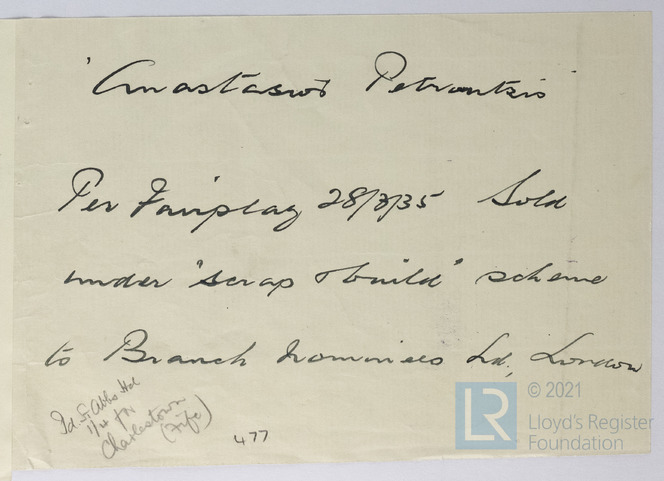 'Anastasios Petrontsis'
Per Fairplay 28/3/35 Sold
under "scrap & build" scheme
to Branch Nominees Ld, London
1/4
Charlestown
(Fife)
477
LR
© 2021
Lloyd's Register
Foundation